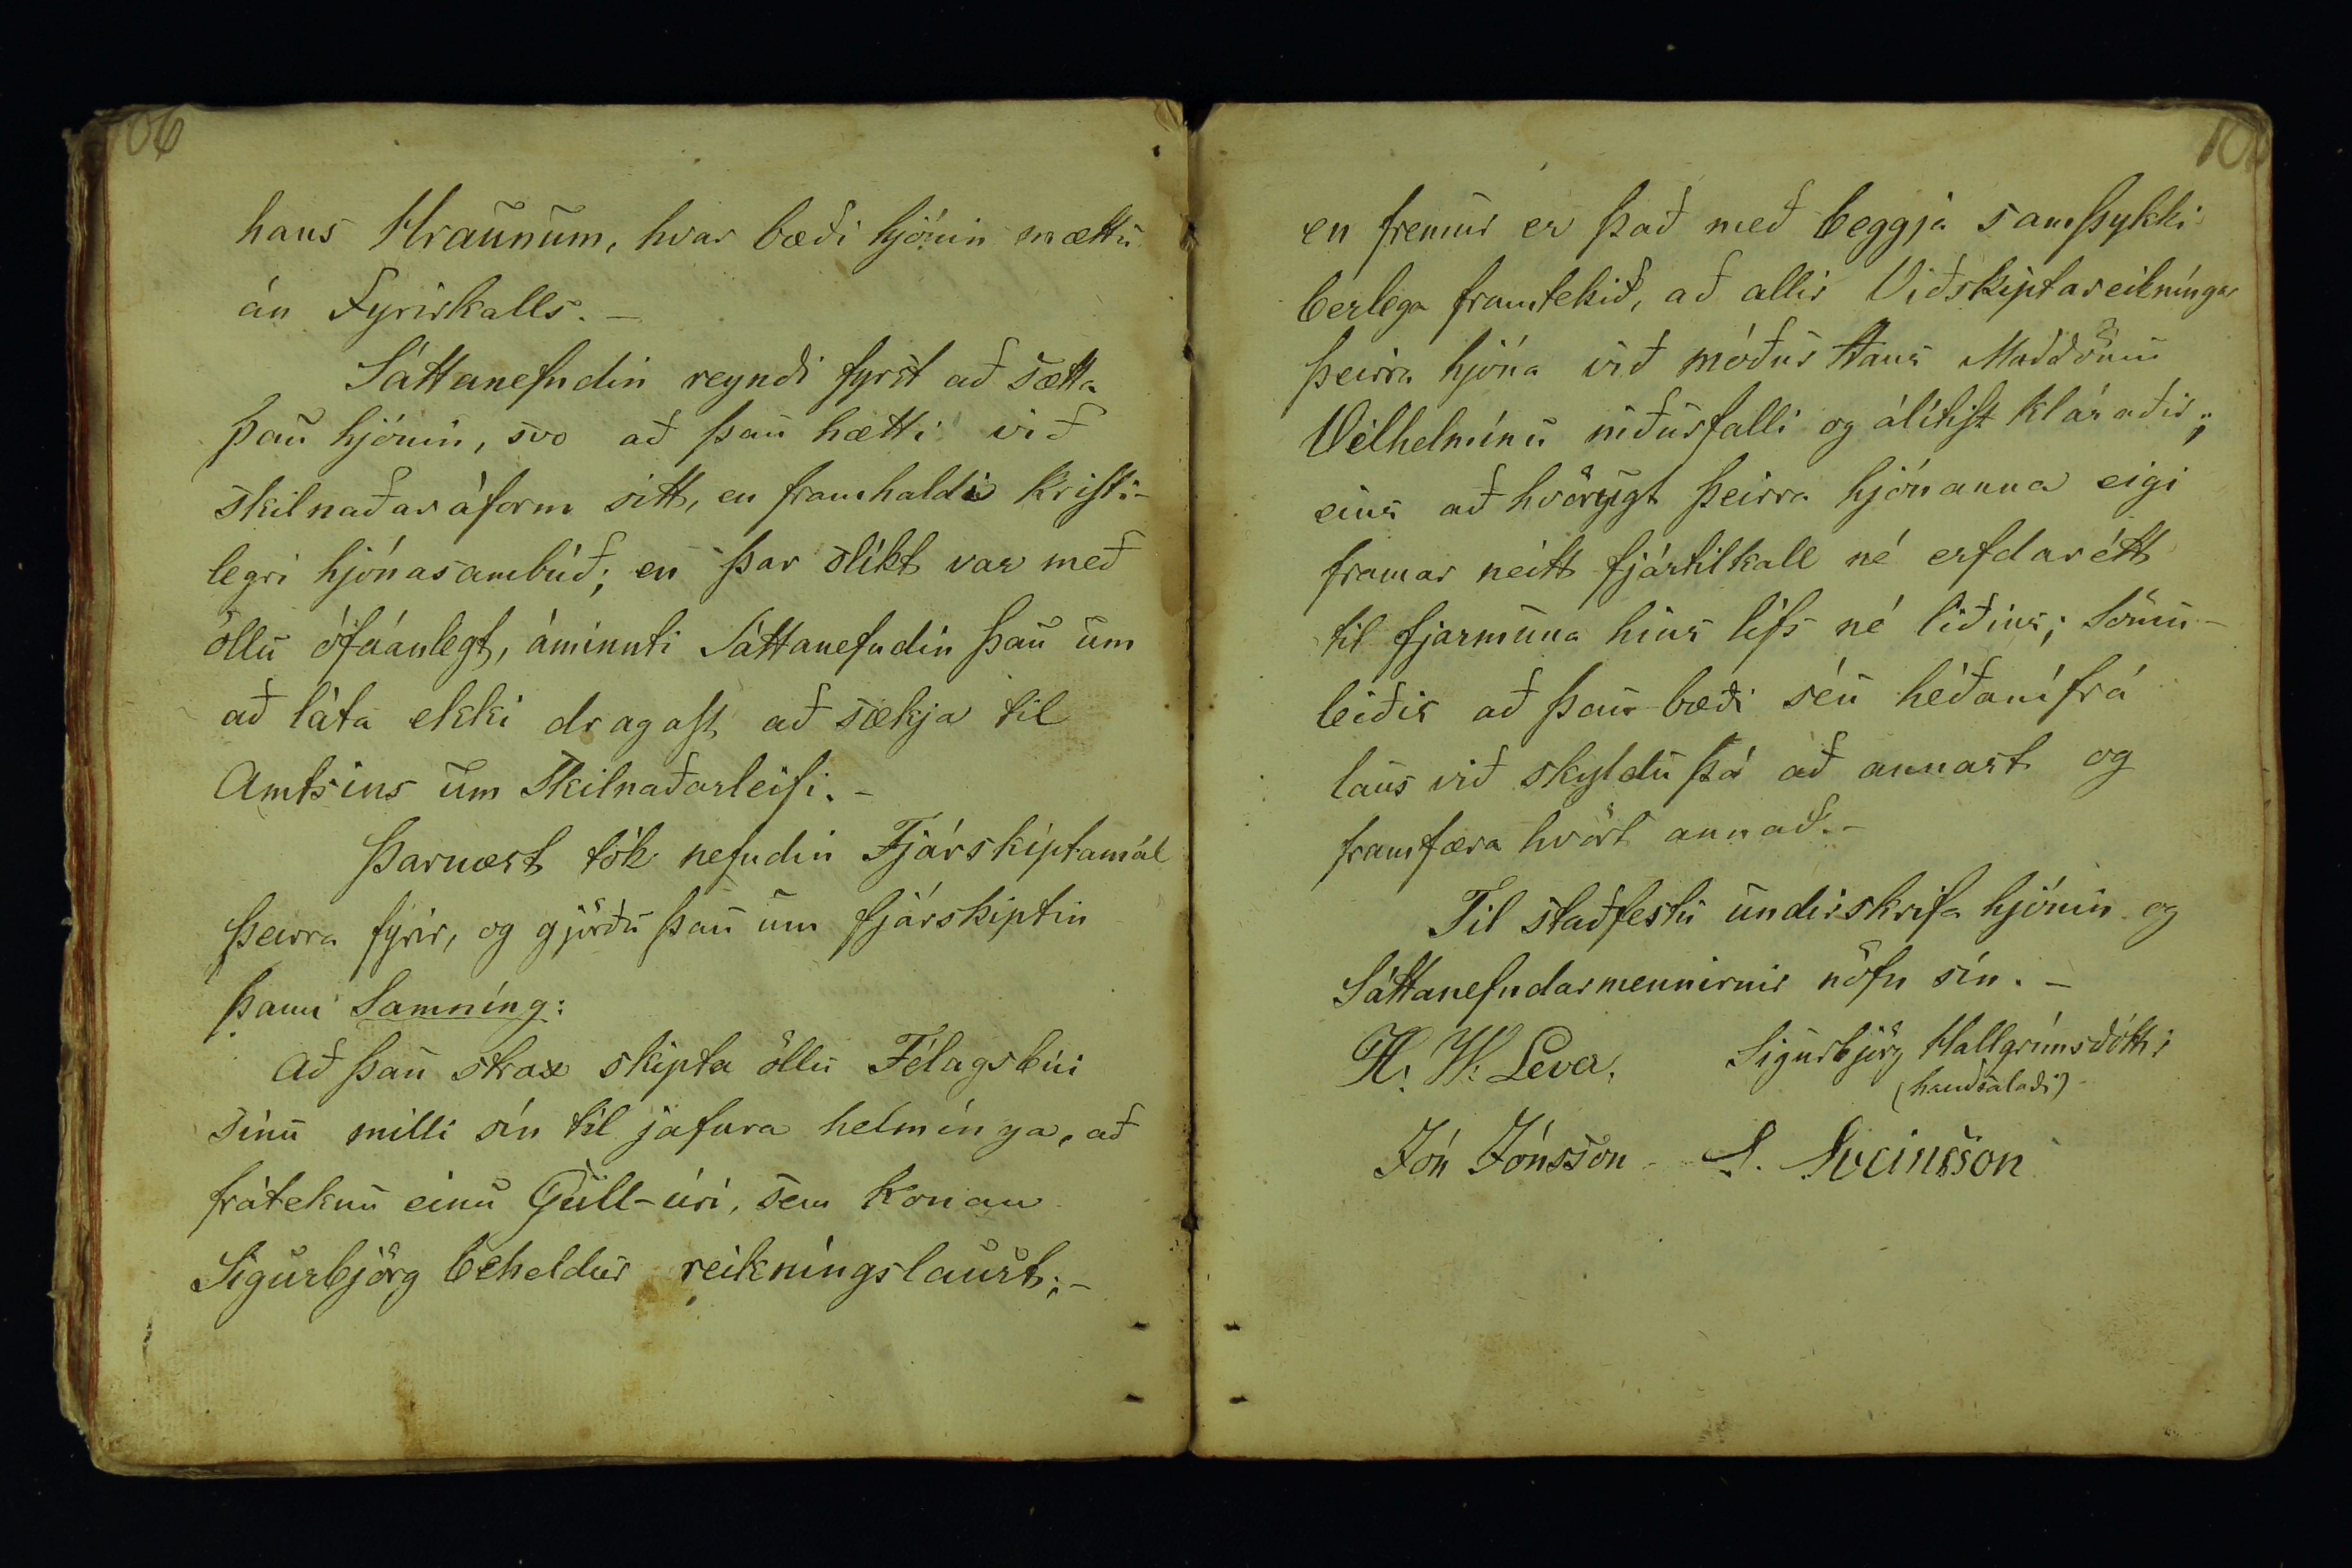 hans Hraunum, hvar bæði hjónin mættu
án Fyrirkalls. –
Sáttanefndin reyndi fyrst að sætta
þau hjónin, svo að þau hætti við
skilnaðaráform sitt, en framhaldi kristi-
legri hjónasambúð; en þar slíkt var með
öllu ófáanlegt, áminnti Sáttanefndin þau um
að láta ekki dragast að sækja til
Amtsins um Skilnaðarleifi. –
Þarnæst tók nefndin Fjárskiptamál
þeirra fyrir, og gjörðu þau um fjárskiptin
þann Samníng:
Að þau strax skipta öllu Félagsbúi
sínu milli sín til jafnra helmínga, að
fráteknu einu Gull-úri, sem konan
Sigurbjörg beheldur reikníngslaust; –
en fremur er það með beggja samþykki
berlega framtekið, að allir Viðskiptareikníngar
þeirra hjóna við móður Hans Maddömu
Vilhelmínu niðurfalli og álítist kláraðir;
eins að hvörugt þeirra hjónanna eigi
framar neitt fjártilkall né erfdarétt
til fjármuna hins lífs né liðins; Sömu-
leiðis að þau bæði séu héðanífrá
laus við skyldu þá að annast og
framfæra hvört annað. –
Til staðfestu undirskrifa hjónin og
Sáttanefndarmennirnir nöfn sín. –
H. W. Lever. Sigurbjörg Hallgrímsdóttir
(handsalaði)
Jón Jónsson S. Sveinsson